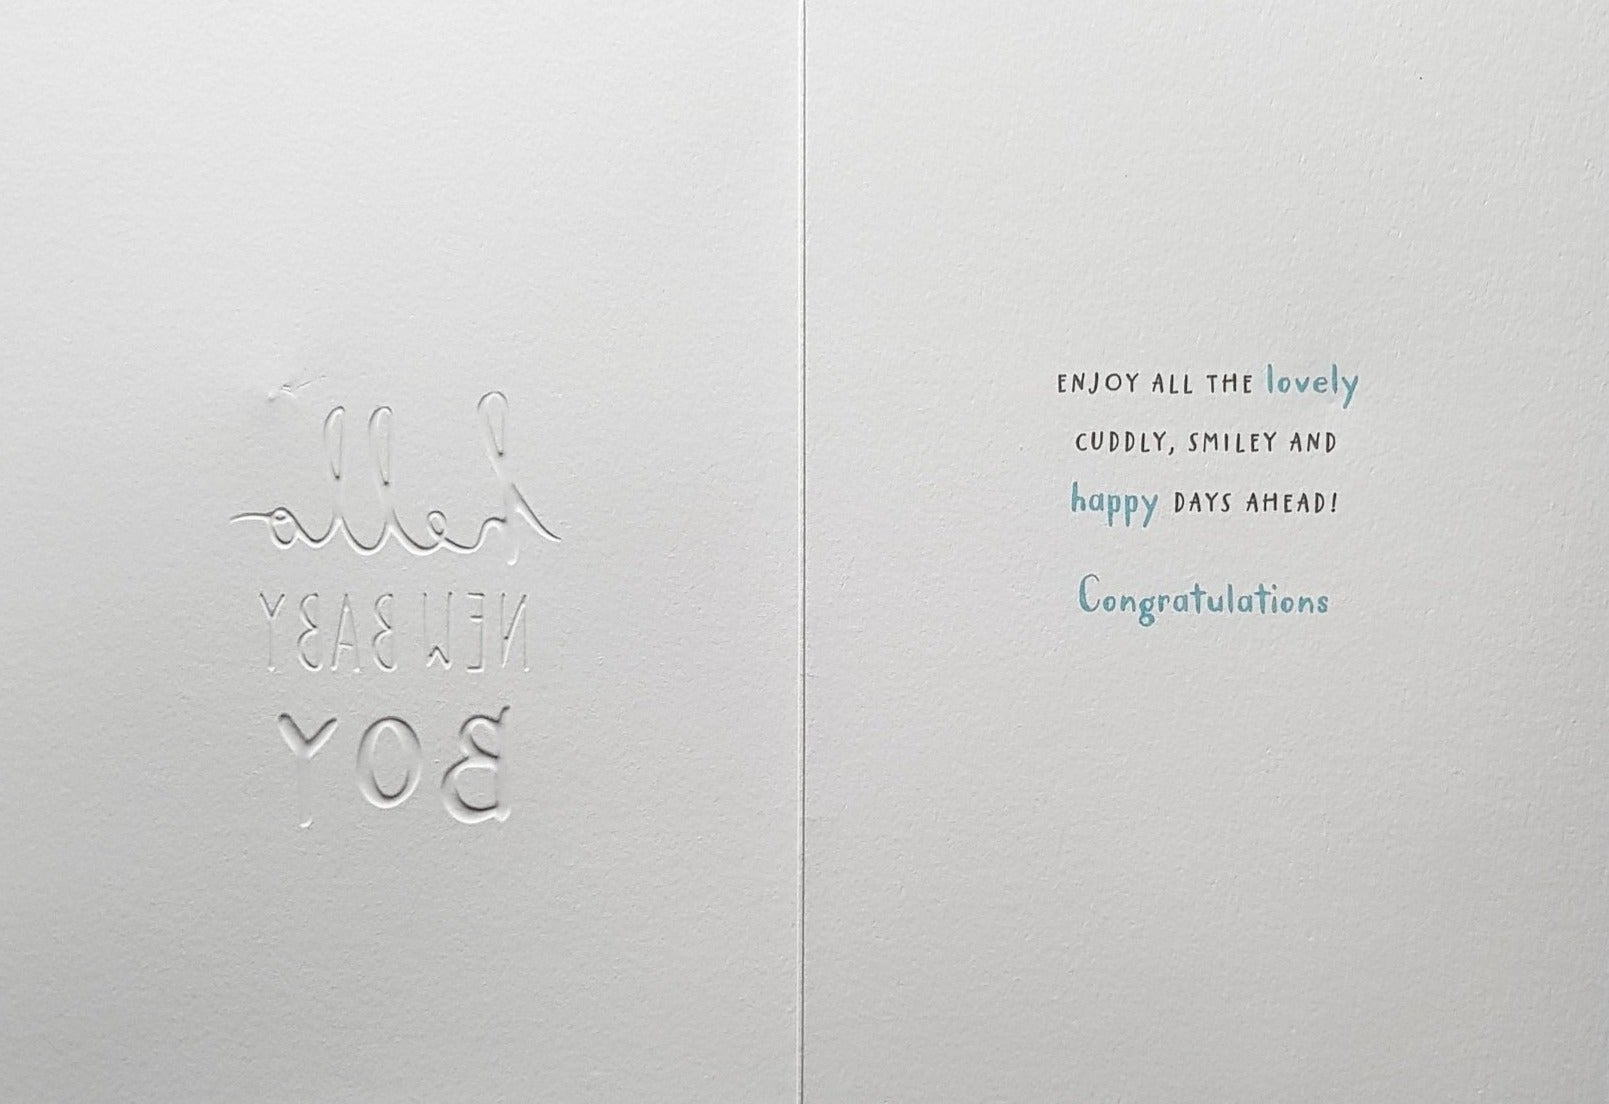 hello
NEW BABY
BOY
ENJOY ALL THE lovely
CUDDLY, SMILEY AND
happy DAYS AHEAD!
Congratulations